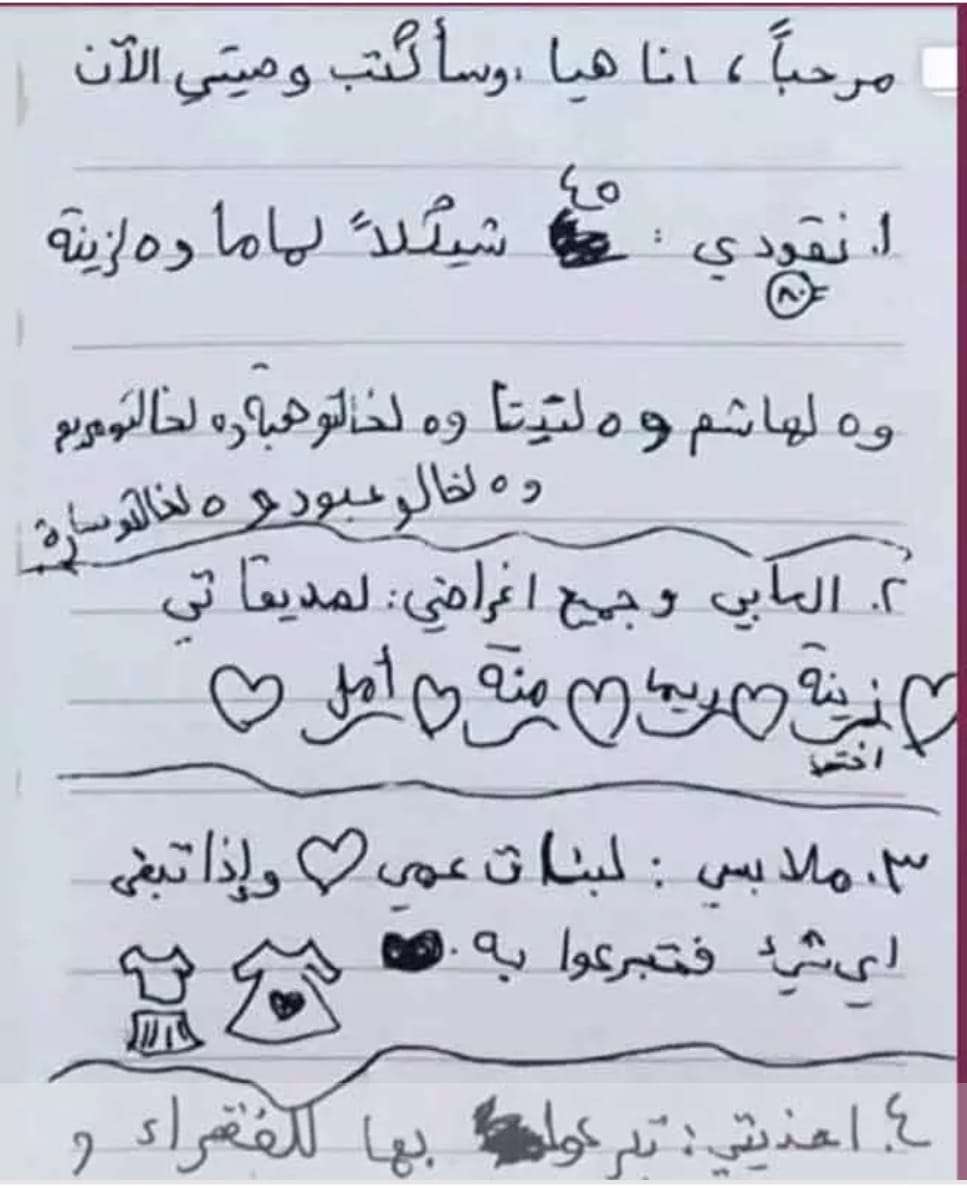 مرحباً، انا هيا، وسأكْتب وصيتي الآن
١. نقودي : ٤٥ شيْكلاً لماما و٥ لزينة
٨٠
و٥ لهاشم و٥ لتيتا و٥ لخالتو هبة و٥ لخالتو مريم
و٥ لخالو عبود و٥ لخالتو سارة
٢. العابي وجميع اغراضي: لصديقاتي
زينة ريما منة أمل
اختي
٣. ملابسي : لبنات عمي وإذا تبقى
اي شيء فتبرعوا به.
٤. احذيتي: تبرعوا بها للفقراء و